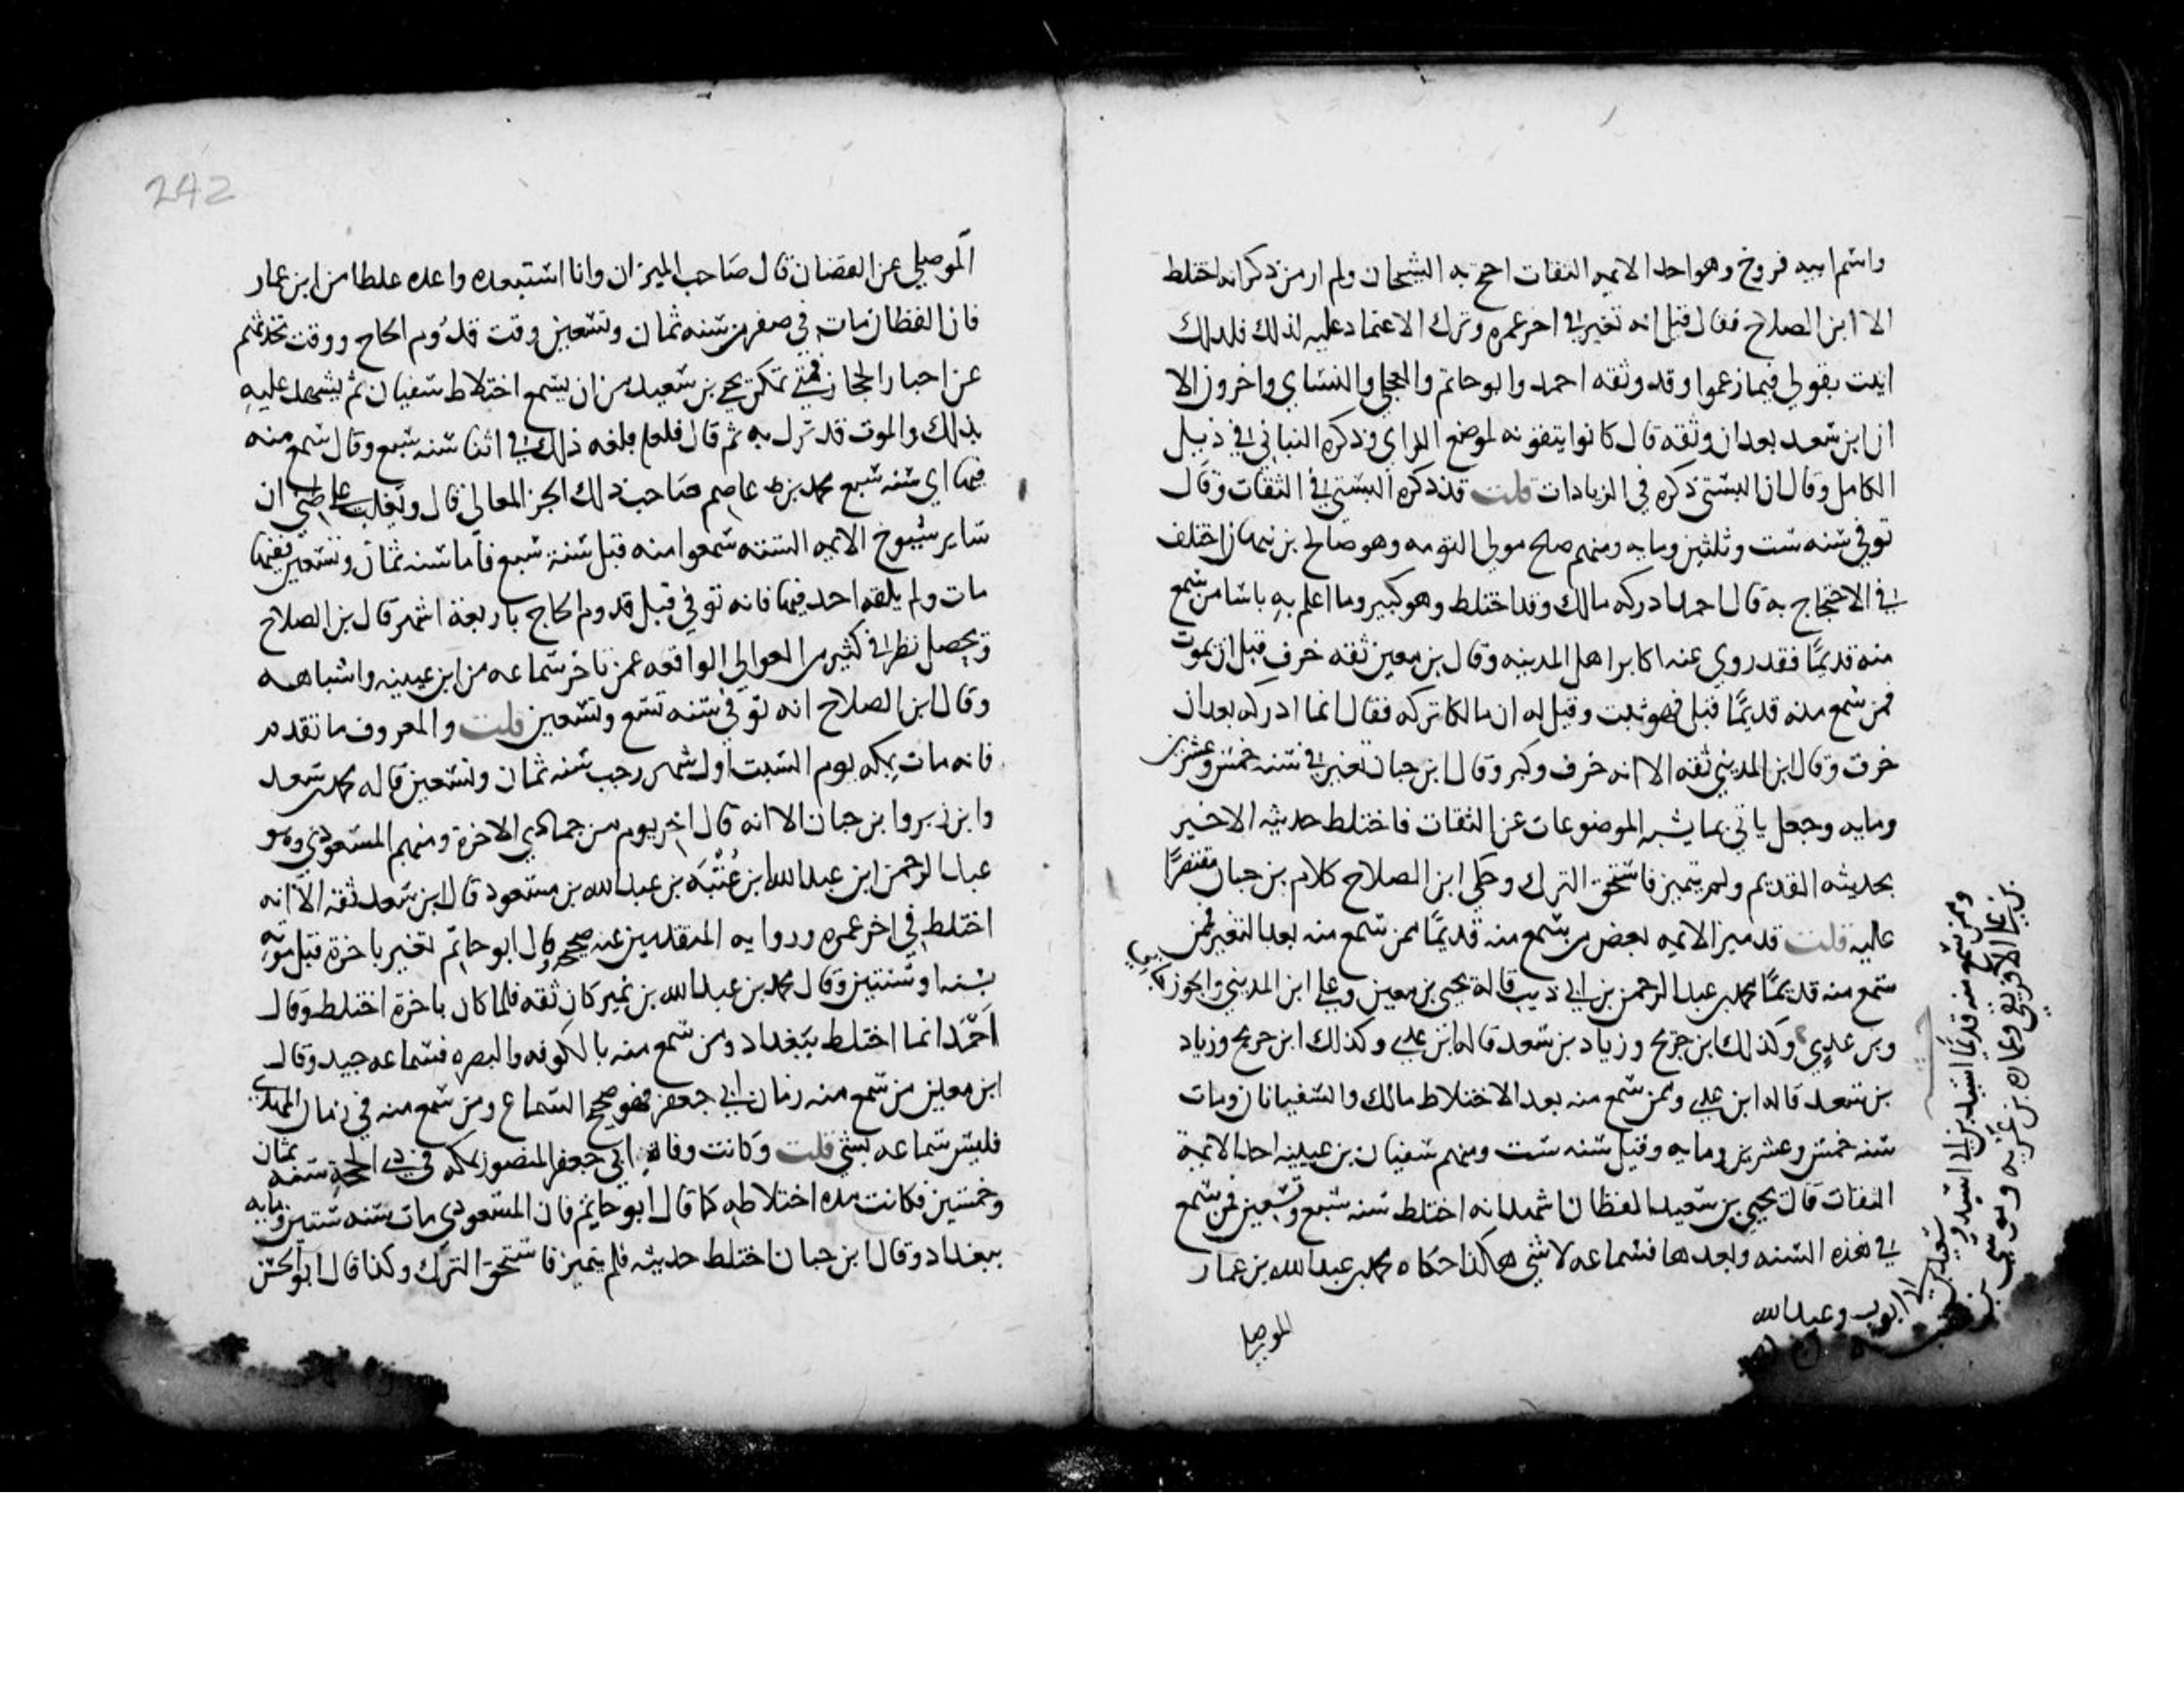 واسم ابيه فروخ وهو احد الايمه الثقات احتج به الشيخان ولم ار من ذكر انه اختلط
الا ابن الصلاح فقال قيل انه تغير في اخر عمره وترك الاعتماد عليه لذلك فلذلك
اتيت بقولي فيما زعموا وقد وثقه احمد وابو حاتم والعجلي والنساي واخرون الا
ان ابن سعد بعد ان وثقه قال كانوا يتقونه لموضع الراي وذكره النباتي في ذيل
الكامل وقال ان البستي ذكره في الزيادات قلت قد ذكره البستي في الثقات وقال
توفي سنه ست وثلثين ومايه ومنهم صلح مولى التومه وهو صالح بن نبهان اختلف
في الاحتجاج به قال احمد ادركه مالك وقد اختلط وهو كبير وما اعلم به باسا من سمع
منه قديمًا فقد روي عنه اكابر اهل المدينه وقال بن معين ثقه خرف قبل ان يموت
فمن سمع منه قديمًا قبل فهو ثبت وقيل له ان مالكا تركه فقال انما ادركه بعد ان
خرف وقال ابن المديني ثقه الا انه خرف وكبر وقال ابن حبان تغير في سنه خمس وعشرين
ومايه وجعل ياتي بما يشبه الموضوعات عن الثقات فاختلط حديثه الاخير
بحديثه القديم ولم يتميز فاستحق الترك وحكى ابن الصلاح كلام بن حبان مقتصرًا
عليه قلت قد ميز الايمه بعض من سمع منه قديمًا ممن سمع منه بعد التغير فمن
سمع منه قديمًا محمد بن عبد الرحمن بن ابي ذيب قاله يحيى بن معين وعلي ابن المديني والجوزجاني
وبن عدي وكذلك ابن جريج وزياد بن سعد قاله ابن علي وكذلك ابن جريج وزياد
بن سعد قاله ابن علي وممن سمع منه بعد الاختلاط مالك والسفيانان ومات
سنه خمس وعشرين ومايه وقيل سنه ست ومنهم سفيان بن عيينه احد الايمة
الثقات قال يحيي بن سعيد القطان اشهد انه اختلط سنه سبع وتسعين فمن سمع
في هذه السنه وبعدها فسماعه لا شي هكذا حكاه محمد بن عبد الله بن عمار
الموصلي
وممن سمع منه قديمًا اسيد بن ابي اسيد وسعيد بن ابي ايوب وعبد الله
بن علي الافريقي وعماره بن غزيه وموسى بن عقبه
242
الموصلي عن القطان قال صاحب الميزان وانا استبعده واعده غلطا من ابن عمار
فان القطان مات في صفر من سنه ثمان وتسعين وقت قدوم الحاج ووقت تحدثهم
عن اخبار الحجاز فمتى تمكن يحيى بن سعيد من ان يسمع اختلاط سفيان ثم يشهد عليه
بذلك والموت قد نزل به ثم قال فلعله بلغه ذلك في اثنا سنه سبع وقال سمع منه
فيها اي سنه سبع محمد بن عاصم صاحب ذلك الجز العالي قال ويغلب على ظني ان
ساير شيوخ الايمه الستة سمعوا منه قبل سنة سبع فاما سنه ثمان وتسعين ففيها
مات ولم يلقه احد فيها فانه توفي قبل قدوم الحاج باربعة اشهر قال بن الصلاح
ويحصل نظر في كثير من العوالي الواقعه عمن تاخر سماعه من ابن عيينه واشباهه
وقال ابن الصلاح انه توفي سنه تسع وتسعين قلت والمعروف ما تقدم
فانه مات بمكه يوم السبت اول شهر رجب سنه ثمان وتسعين قاله محمد بن سعد
وابن زبر وابن حبان الا انه قال اخر يوم من جمادي الاخرة ومنهم المسعودي وهو
عبد الرحمن ابن عبد الله ابن عُتْبَه بن عبد الله بن مسعود قال ابن سعد ثقه الا انه
اختلط في اخر عمره وروايه المتقدمين عنه صحيحه وقال ابو حاتم تغير باخرة قبل موته
بسنه او سنتين وقال محمد بن عبد الله بن نمير كان ثقه فلما كان باخرة اختلط وقال
احمد انما اختلط ببغداد ومن سمع منه بالكوفه والبصره فسماعه جيد وقال
ابن معين من سمع منه زمان ابي جعفر فهو صحيح السماع ومن سمع منه في زمان المهدي
فليس سماعه بشي قلت وكانت وفاة ابي جعفر المنصور بمكه في ذي الحجة سنه ثمان
وخمسين فكانت مده اختلاطه كما قال ابو حاتم فان المسعودي مات سنه ستين ومايه
ببغداد وقال ابن حبان اختلط حديثه فلم يتميز فاستحق الترك وكذا قال ابو الحسن